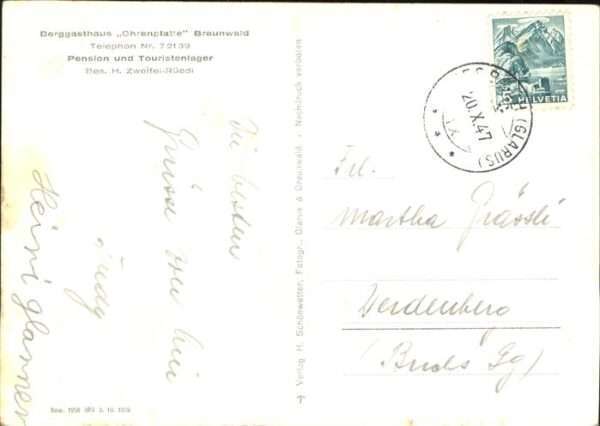 Berggasthaus „Ohrenplatte" Braunwald
Telephon Nr. 72139
Pension und Touristenlager
Bes. H. Zweifel-Rüedi
Die besten
Grüsse von hier
Heini Glarner
Verlag H. Schönwetter, Fotogr., Glarus & Braunwald · Nachdruck verboten
HELVETIA
20.X.47
(GLARUS)
Frl.
Martha Grässli
Werdenberg
(Buchs Sg)